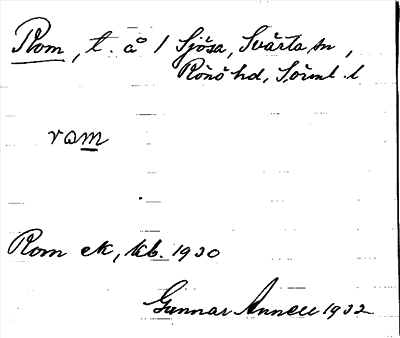 Rom, t. å 1 Sjösa, Svärta sn,
Rönö hd, Sörml. l.
rom
Rom ek, kb. 1930
Gunnar Annell 1932